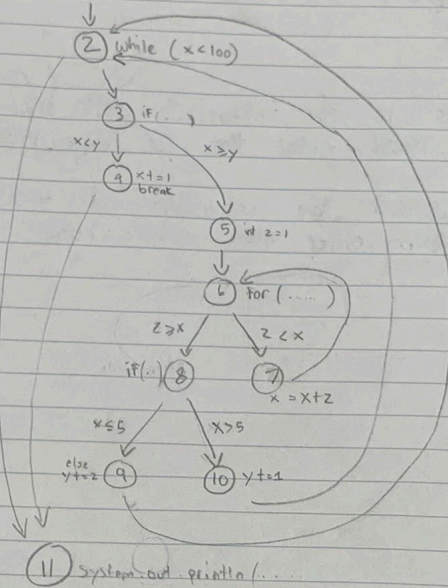 2 while (x<100)
3 if(..)
x<y
x≥y
4 x+=1
break
5 int z=1
6 for (.....)
z≥x
z<x
if(..) 8
7
x = x+z
x≤5
x>5
else
y+=2 9
10 y+=1
11 system.out.println(.....